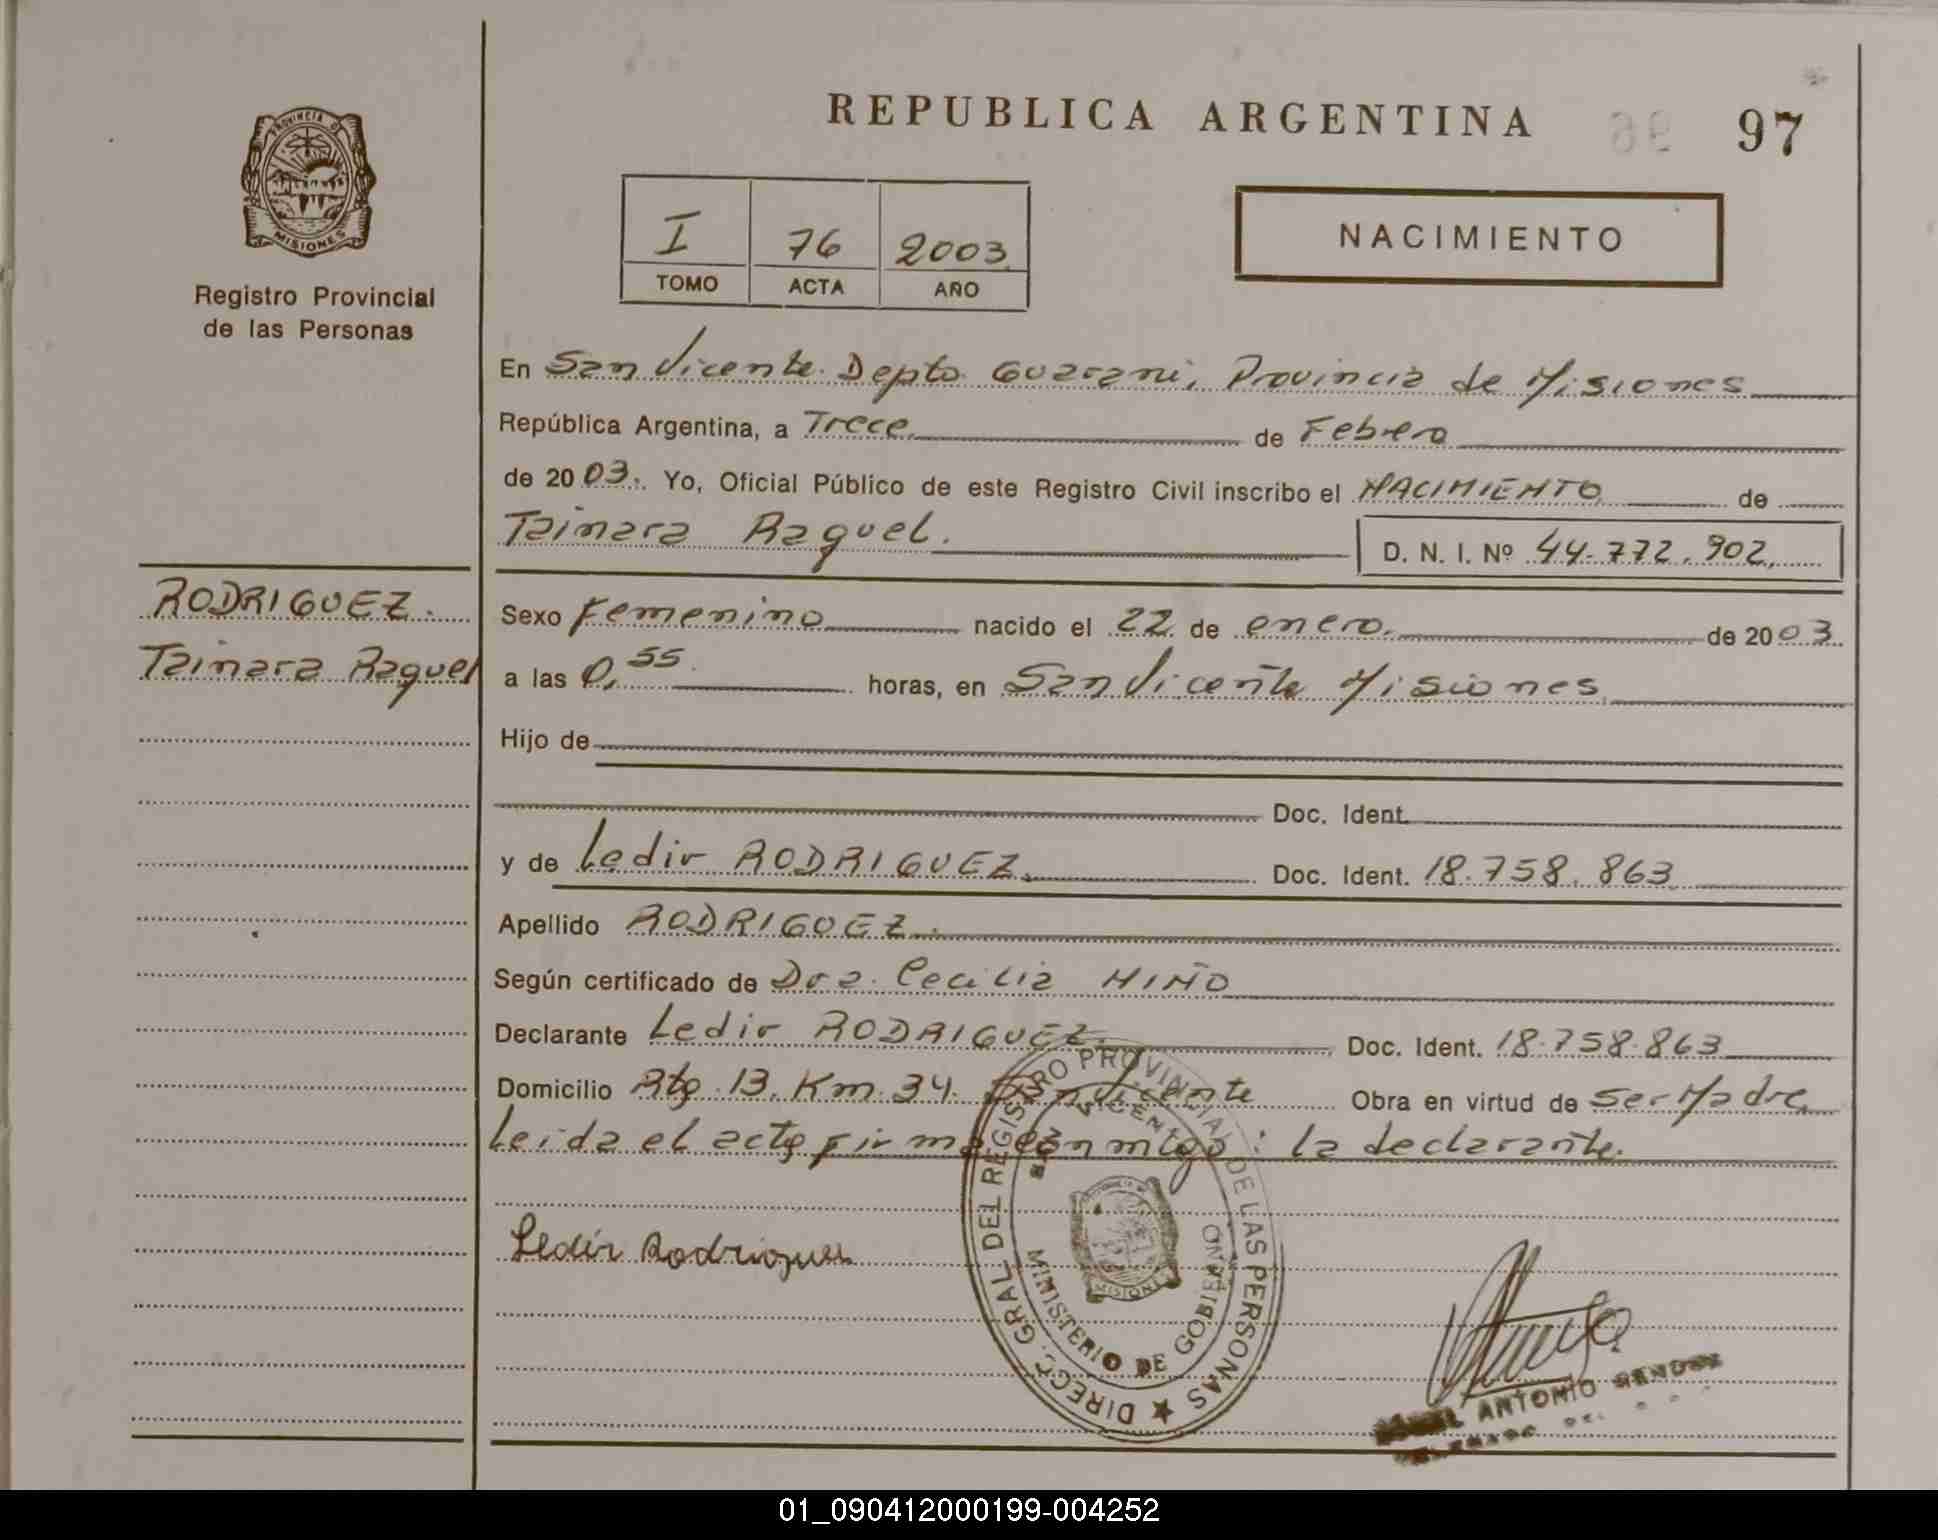 REPUBLICA ARGENTINA
97
PROVINCIA DE
MISIONES
Registro Provincial
de las Personas
I 76 2003
TOMO ACTA AÑO
NACIMIENTO
En San Vicente Depto Guarani, Provincia de Misiones
República Argentina, a Trece de Febrero
de 2003. Yo, Oficial Público de este Registro Civil inscribo el NACIMIENTO de
Tainara Raquel.
D. N. I. Nº 44.772.902.
RODRIGUEZ.
Tainara Raquel
Sexo Femenino nacido el 22 de enero. de 2003.
a las 0,55 horas, en San Vicente Misiones
Hijo de
Doc. Ident.
y de Ledir RODRIGUEZ. Doc. Ident. 18.758.863
Apellido RODRIGUEZ.
Según certificado de Dra. Cecilia NIÑO
Declarante Ledir RODRIGUEZ. Doc. Ident. 18.758.863
Domicilio Rta 13. Km. 34. San Vicente Obra en virtud de ser Madre
Leida el acta firma conmigo: la declarante.
DIRECC. GRAL DEL REGISTRO PROVINCIAL DE LAS PERSONAS
SAN VICENTE
MISIONES
MINISTERIO DE GOBIERNO
Ledir Rodriguez
ANTONIO
01_090412000199-004252